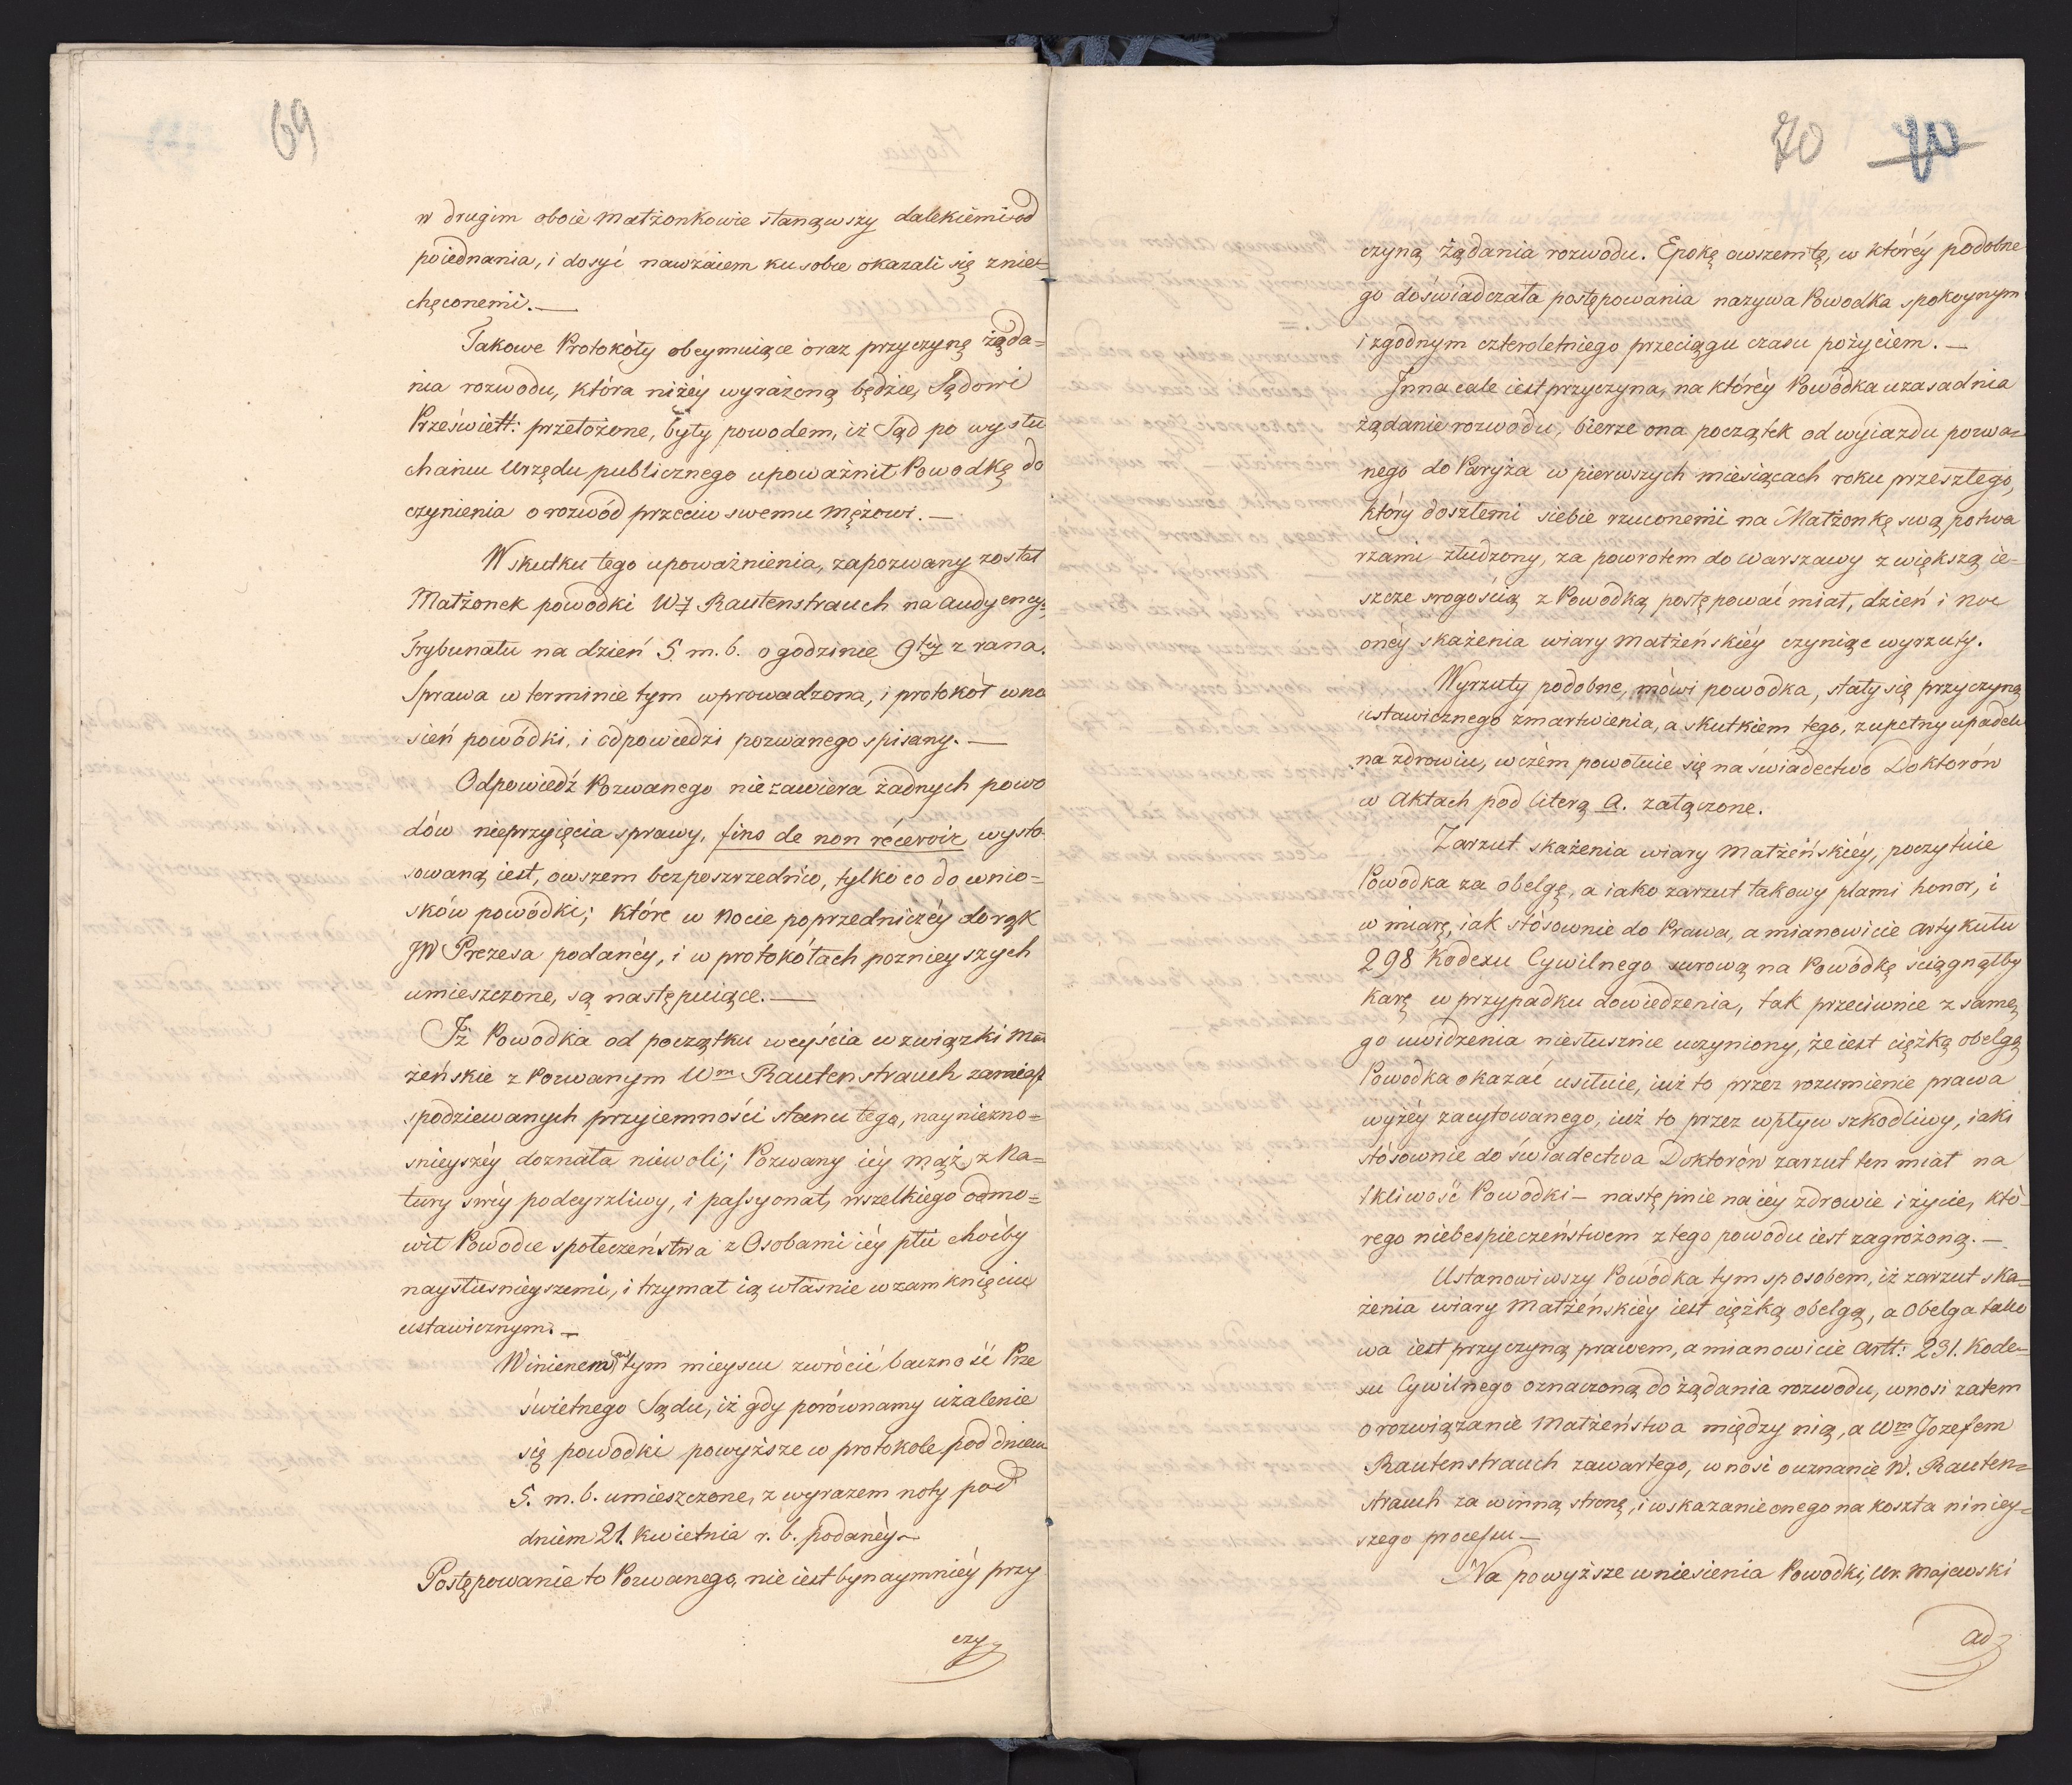 69
w drugim oboie małżonkowie stanąwszy dalekiemi od
poiednania, i dosyć nawzaiem ku sobie okazali się znie=
chęconemi. —
Takowe Protokóły obeymuiące oraz przyczynę żąda=
nia rozwodu, która niżéy wyrażoną będzie, Sądowi
Przeświett: przełożone, były powodem, iż Sąd po wysłu
chaniu Urzędu publicznego upoważnił Powodkę do
czynienia o rozwód przeciw swemu Mężowi. —
W skutku tego upoważnienia, zapozwany został
Małżonek powodki WJ Rautenstrauch na audyency=
Trybunału na dzień 5 m. b. o godzinie 9téy z rana.
Sprawa w terminie tym wprowadzona, i protokół wnio
sień powódki, i odpowiedzi pozwanego spisany. —
Odpowiedź Pozwanego nie zawiera żadnych powo
dów nieprzyięcia sprawy, fins de non récevoir wysto
sowaną iest, owszem bezposzrzednio, tylko co do wnio=
sków powódki; które w Nocie poprzedniczéy do rąk
JW Prezesa podanéy, i w protokółach poznieyszych
umieszczone, są następuiące. —
Iż Powodka od początku weyścia w związki Mał
żeńskie z Pozwanym Wm Rautenstrauch zamiast
spodziewanych przyiemności stanu tego, nayniezno=
snieyszéy doznała niewoli; Pozwany iéy Mąż z Na=
tury swéy podeyrzliwy, i passyonat, wszelkiego odmo=
wił Powodce społeczeństwa z Osobami iéy płci choćby
naystusnieyszemi, i trzymał ią własnie w zamknięciu
ustawicznym. —
Winienem w tym mieyscu zwrócić baczność Prze
świetnego Sądu, iż gdy porównamy użalenie
się powodki powyższe w protokole pod dniem
5. m. b. umieszczone, z wyrazem noty pod
dniem 21. Kwietnia r. b. podanéy —
Postępowanie to Pozwanego, nie iest bynaymniéy przy
czy
70 70
czyną żądania rozwodu. Epokę owszem tę, w któréy podobne
go doświadczała postępowania nazywa Powodka spokoynym
i zgodnym czteroletniego przeciągu czasu pożyciem. —
Inna cale iest przyczyna, na któréy Powódka uzasadnia
żądanie rozwodu, bierze ona początek od wyiazdu pozwa=
nego do Paryża w pierwszych miesiącach roku przeszłego,
który doszłemi siebie rzuconemi na Małżonkę swą potwa
rzami złudzony, za powrotem do Warszawy z większą ie=
szcze srogością z Powodką postępować miał, dzień i noc
onéy skażenia wiary Małżeńskiéy czyniąc wyrzuty.
Wyrzuty podobne, mówi powodka, stały się przyczyną
ustawicznego zmartwienia, a skutkiem tego, zupełny upadek
na zdrowiu, w czém powołuie się na świadectwo Doktorów
w Aktach pod literą a. załączone.
Zarzut skażenia wiary Małżeńskiéy, poczytuie
Powodka za obelgę, a iako zarzut takowy plami honor, i
w miarę, iak stósownie do Prawa, a mianowicie Artykułu
298 Kodexu Cywilnego surową na Powódkę ściągnąłby
Karę w przypadku dowiedzenia, tak przeciwnie z same
go uwidzenia niesłusznie uczyniony, że iest ciężką obelgą
Powodka okazać usiłuie, iuż to przez rozumienie prawa
wyżéy zacytowanego, iuż to przez wpływ szkodliwy, iaki
stósownie do świadectwa Doktorów zarzut ten miał na
tkliwość Powodki — następnie na iéy zdrowie i życie, któ-
rego niebespieczeństwem z tego powodu iest zagrożoną. —
Ustanowiwszy Powódka tym sposobem, iż zarzut ska=
żenia wiary Małżeńskiéy iest ciężką obelgą, a Obelga tako
wa iest przyczyną prawem, a mianowicie Artt: 231. Kode=
xu Cywilnego oznaczoną do żądania rozwodu, wnosi zatem
o rozwiązanie Małżeństwa między nią, a Wm Jozefem
Rautenstrauch zawartego, wnosi o uznanie W. Rauten=
strauch za winną stronę, i wskazanie onego na koszta niniey=
szego processu —
Na powyższe wniesienia Powodki, Ur. Majewski
ad